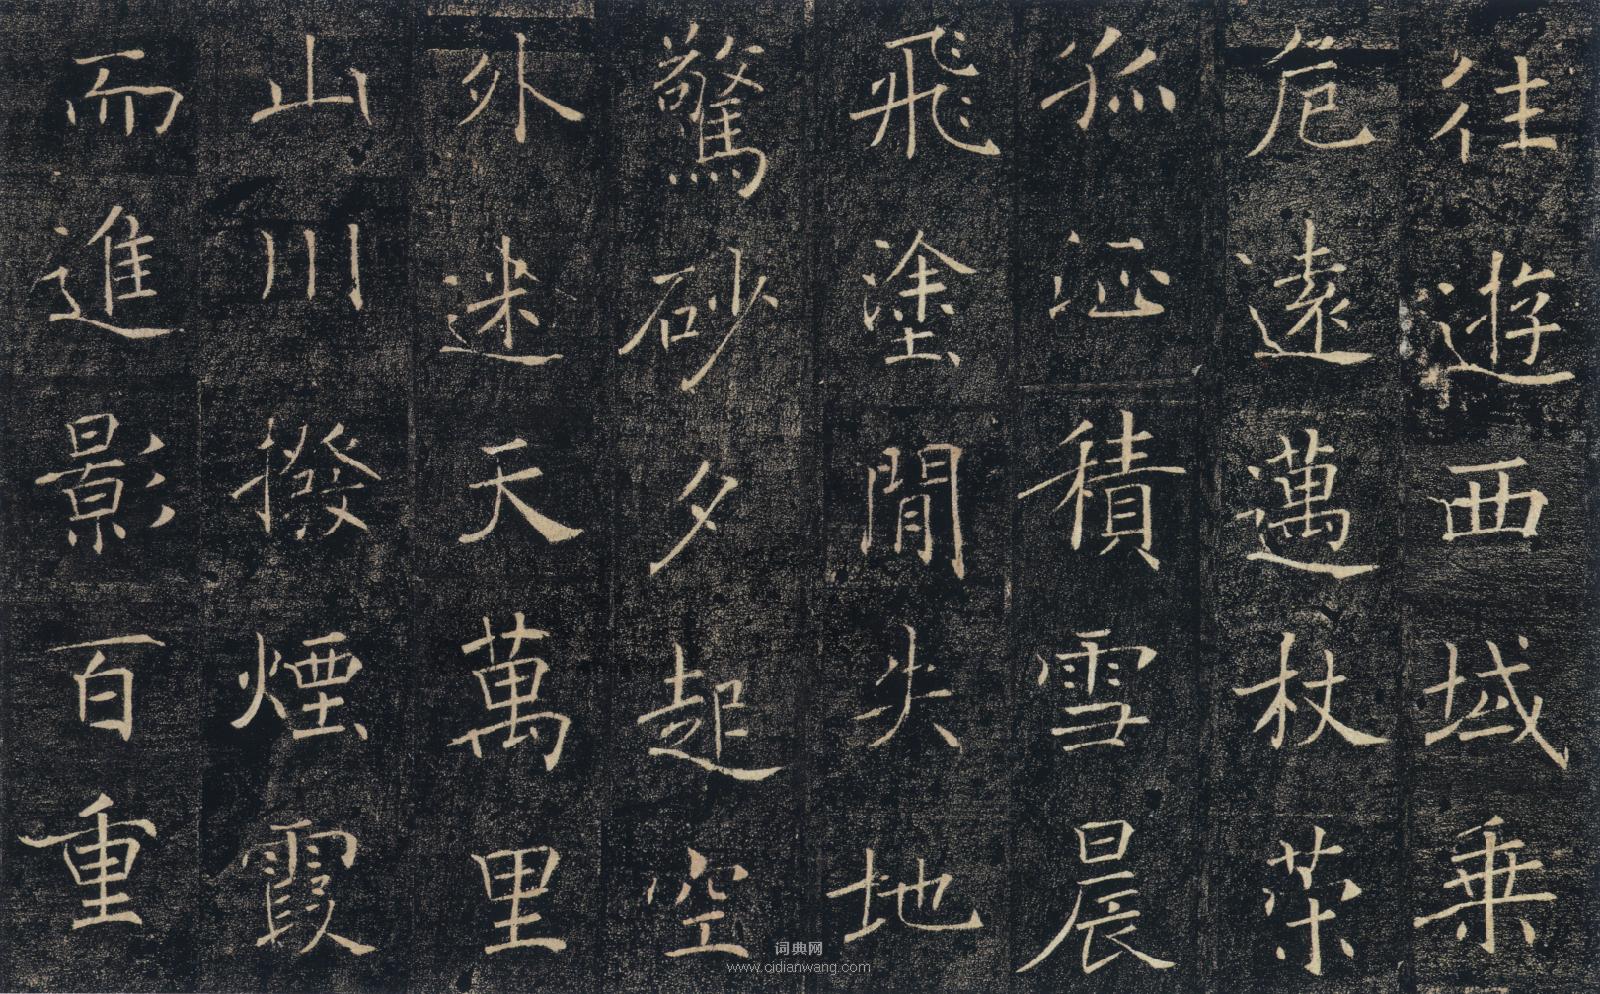 往遊西域乗
危遠邁杖策
孤征積雪晨
飛塗閒失地
驚砂夕起空
外迷天萬里
山川撥煙霞
而進影百重
词典网
www.cidianwang.com